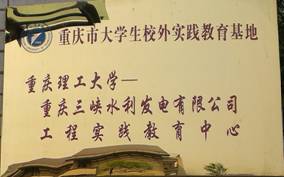 重庆市大学生校外实践教育基地
重庆理工大学—
重庆三峡水利发电有限公司
工程实践教育中心